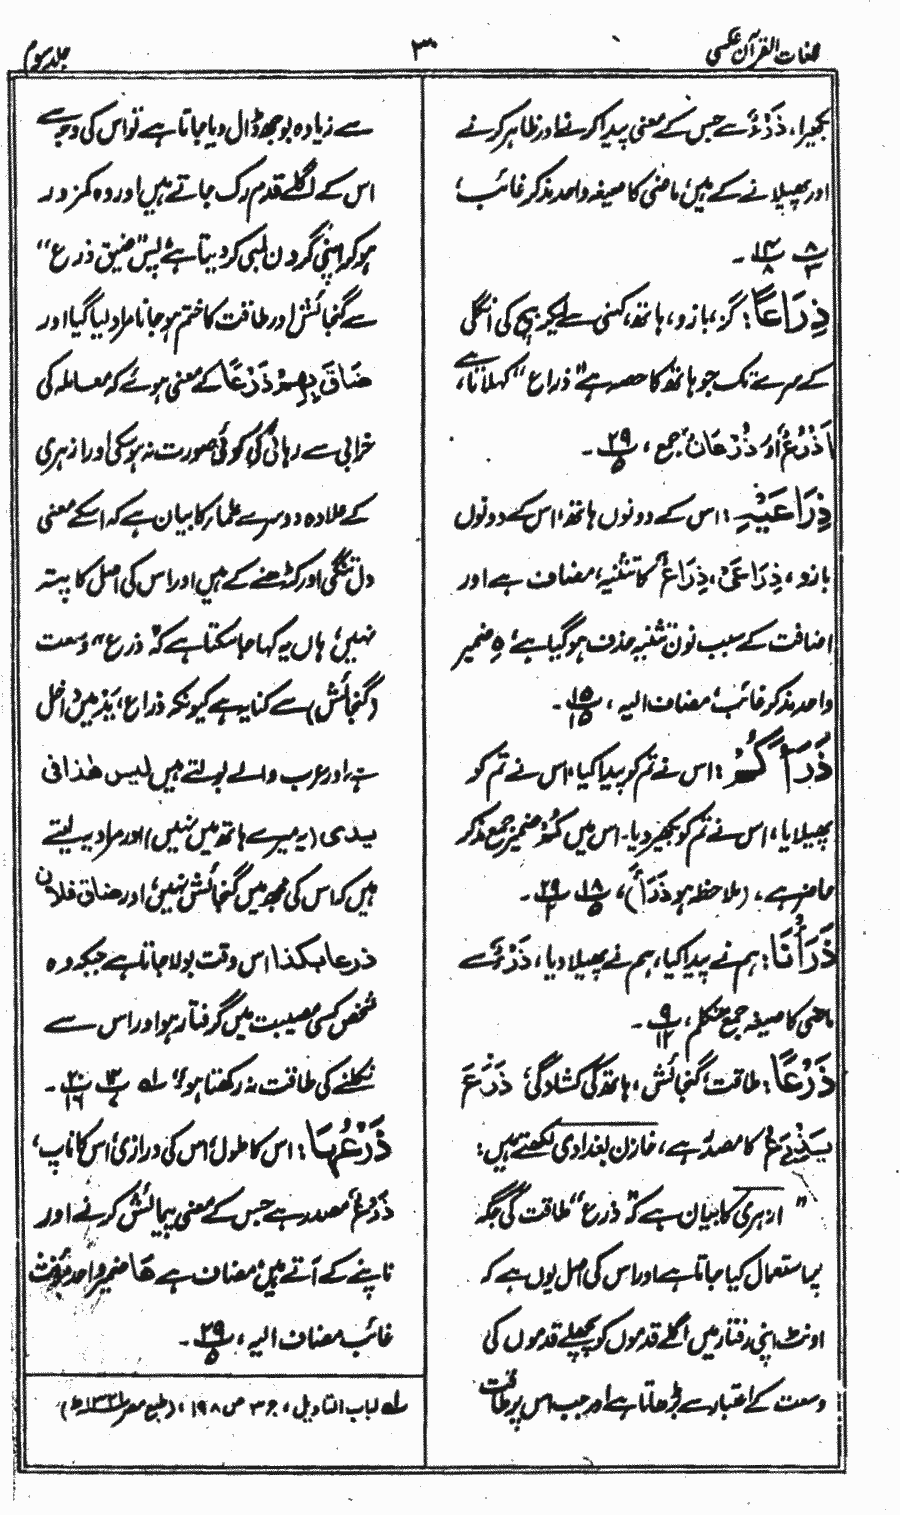 لغات القرآن عکسی
۳
جلد سوم
بکھیرا، ذَرْءٌ سے جس کے معنی پیدا کرنے اور ظاہر کرنے
اور پھیلانے کے ہیں، ماضی کا صیغہ واحد مذکر غائب،
۸/۳ ۱۴/۸ ۔
ذِرَاعًا: گز، بازو، ہاتھ، کہنی سے لیکر بیچ کی انگلی
کے سرے تک جو ہاتھ کا حصہ ہے "ذراع" کہلاتا ہے،
اَذْرُعٌ اور ذُرْعَانٌ جمع، ۲۹/۵ ۔
ذِرَاعَيْہِ: اس کے دونوں ہاتھ، اس کے دونوں
بازو، ذِرَاعَیْ، ذِرَاعٌ کا تثنیہ، مضاف ہے اور
اضافت کے سبب نون تثنیہ حذف ہوگیا ہے، ہٖ ضمیر
واحد مذکر غائب، مضاف الیہ، ۱۵/۱۵ ۔
ذَرَأَكُمْ: اس نے تم کو پیدا کیا، اس نے تم کو
پھیلایا، اس نے تم کو بکھیر دیا۔ اس میں کُمْ ضمیر جمع مذکر
حاضر ہے، (ملاحظہ ہو ذَرَأَ)، ۱۸/۵ ۲۹/۲ ۔
ذَرَأْنَا: ہم نے پیدا کیا، ہم نے پھیلا دیا، ذَرْءٌ سے
ماضی کا صیغہ جمع متکلم، ۹/۱۲ ۔
ذَرْعًا: طاقت، گنجائش، ہاتھ کی کشادگی، ذَرَعَ
يَذْرَعُ کا مصدر ہے، خازن بغدادی لکھتے ہیں:
" ازہری کا بیان ہے کہ "ذرع" طاقت کی جگہ
استعمال کیا جاتا ہے اور اس کی اصل یوں ہے کہ
اونٹ اپنی رفتار میں اگلے قدموں کو پچھلے قدموں کی
وسعت کے اعتبار سے بڑھاتا ہے اور جب اس پر طاقت
سے زیادہ بوجھ ڈال دیا جاتا ہے تو اس کی وجہ سے
اس کے اگلے قدم رک جاتے ہیں اور وہ کمزور
ہو کر اپنی گردن لمبی کر دیتا ہے، پس "ضیق ذرع"
سے گنجائش اور طاقت کا ختم ہو جانا مراد لیا گیا اور
ضَاقَ بِهِمْ ذَرْعًا کے معنی ہوئے کہ معاملہ کی
خرابی سے رہائی کی کوئی صورت نہ ہو سکی اور ازہری
کے علاوہ دوسرے علماء کا بیان ہے کہ اسکے معنی
دل تنگی اور کڑھنے کے ہیں اور اس کی اصل کا پتہ
نہیں، ہاں یہ کہا جا سکتا ہے کہ "ذرع" وسعت
(گنجائش) سے کنایہ ہے کیونکہ ذراع، ید میں داخل
ہے، اور عرب والے بولتے ہیں لیس ھٰذا فی
یدی (یہ میرے ہاتھ میں نہیں) اور مراد یہ لیتے
ہیں کہ اس کی مجھ میں گنجائش نہیں، اور ضاق فلان
ذرعا بکذا اس وقت بولا جاتا ہے جبکہ وہ
شخص کسی مصیبت میں گرفتار ہو اور اس سے
نکلنے کی طاقت نہ رکھتا ہو" لہ ۲۰/۱۶ ۔
ذَرْعُهَا: اس کا طول، اس کی درازی، اس کا ناپ،
ذَرْعٌ مصدر ہے جس کے معنی پیمائش کرنے اور
ناپنے کے آتے ہیں، مضاف ہے ھَا ضمیر واحد مؤنث
غائب مضاف الیہ، ۲۹/۵ ۔
لہ لباب التاویل، ج ۳ ص ۱۹۸، (طبع مصر ۱۳۳۱ھ)